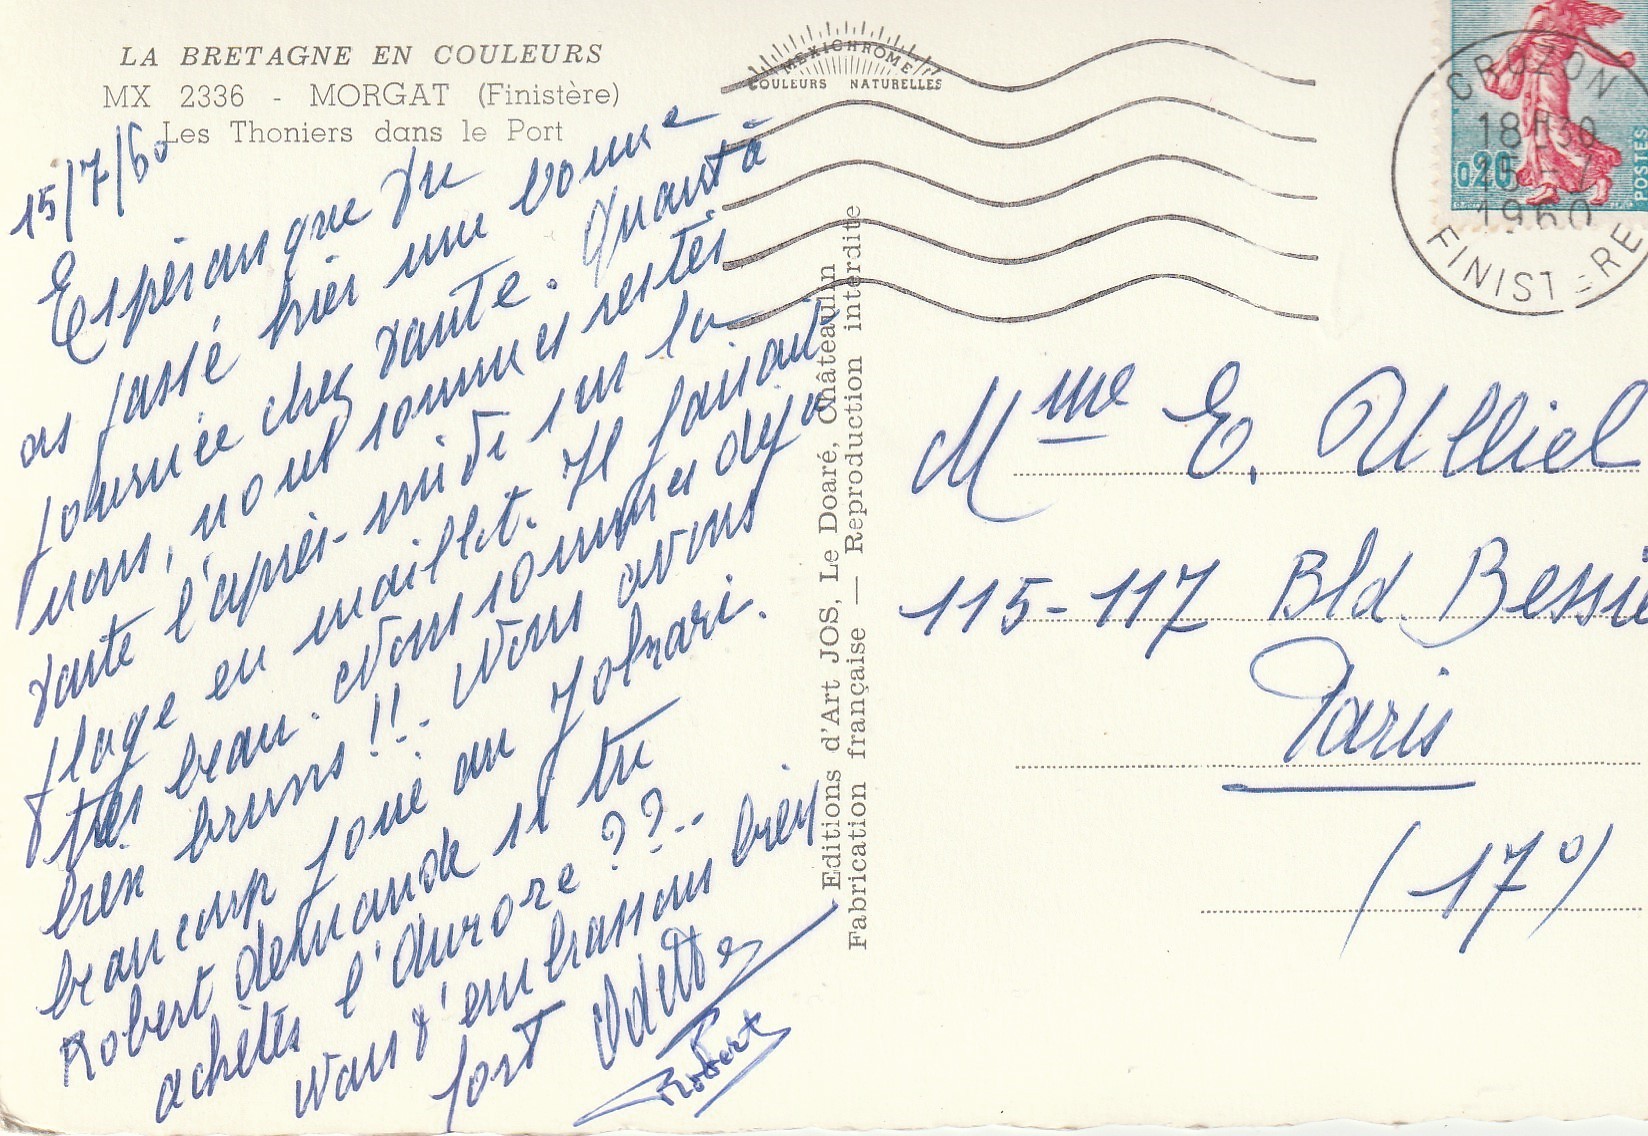 LA BRETAGNE EN COULEURS
MX 2336 - MORGAT (Finistère)
Les Thoniers dans le Port
15/7/60
Espérons que tu
as passé hier une bonne
journée chez tante. Quant à
nous, nous sommes restés
toute l'après-midi sur la
plage en maillot. Il faisait
très beau. Nous sommes déjà
bien bruns!!. Nous avons
beaucoup joué au Jokari.
Robert demande si tu
achètes l'Aurore ??..
Nous t'embrassons bien
fort Odette
Robert
MEXICHROME
COULEURS NATURELLES
Editions d'Art JOS, Le Doaré, Châteaulin
Fabrication française — Reproduction interdite
0,20
POSTES
CROZON
18H30
15-7
1960
FINISTERE
Mme E. Ulliel
115-117 Bld Bessiè
Paris
(17°)